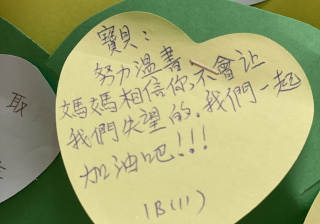 寶貝：
努力溫書，
媽媽相信你，不會让
我們失望的，我們一起
加油吧!!!
1B(11)
取